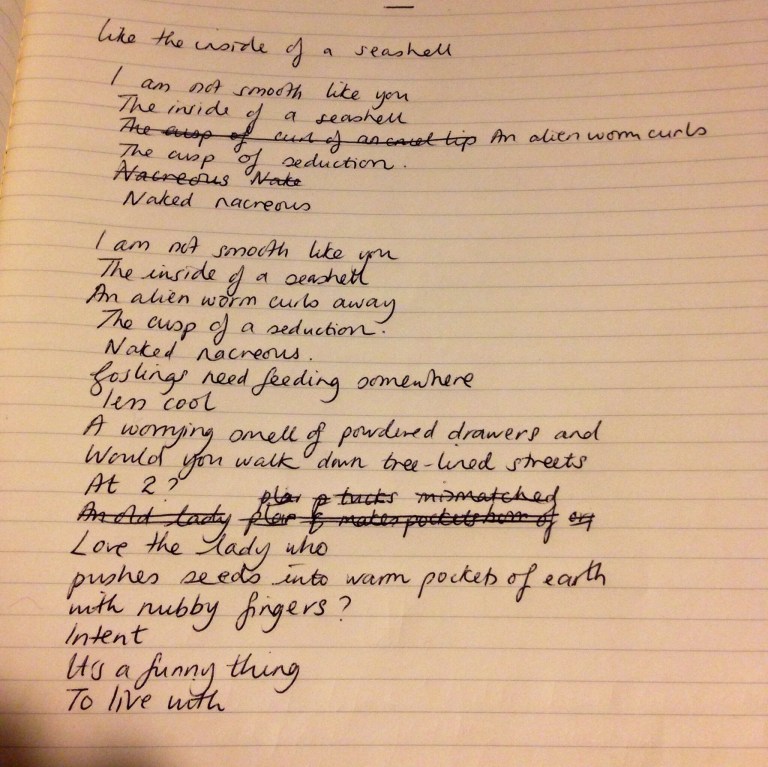 like the inside of a seashell
I am not smooth like you
The inside of a seashell
The cusp of curl of an cruel lip An alien worm curls
The cusp of seduction.
Nacreous Nake
Naked nacreous
I am not smooth like you
The inside of a seashell
An alien worm curls away
The cusp of a seduction.
Naked nacreous.
Goslings need feeding somewhere
less cool
A worrying smell of powdered drawers and
Would you walk down tree-lined streets
At 2?
tucks mismatched
An old lady makes pockets of
Love the lady who
pushes seeds into warm pockets of earth
with nubby fingers?
Intent
It's a funny thing
To live with